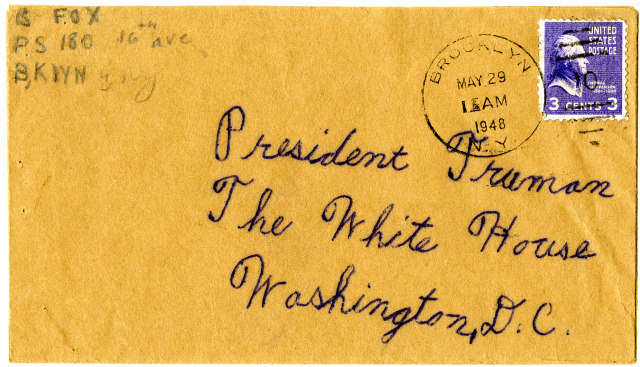 B FOX
PS 180 16th ave
BKLYN
BROOKLYN
MAY 29
AM
1948
N.Y.
UNITED
STATES
POSTAGE
3 CENTS 3
President Truman
The White House
Washington, D.C.